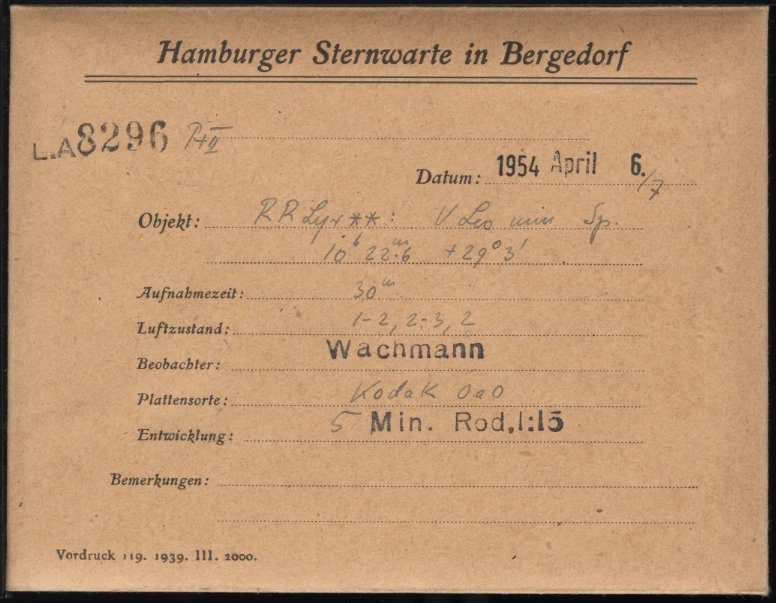 Hamburger Sternwarte in Bergedorf
L.A 8296 P+II
Datum: 1954 April 6./7
Objekt: RR Lyr **: V Leo min Sp.
10h 22m.6 +29° 3'
Aufnahmezeit: 30m
Luftzustand: 1-2, 2-3, 2
Beobachter: Wachmann
Plattensorte: Kodak 0a0
Entwicklung: 5 Min. Rod.1:15
Bemerkungen:
Vordruck 119. 1939. III. 2000.